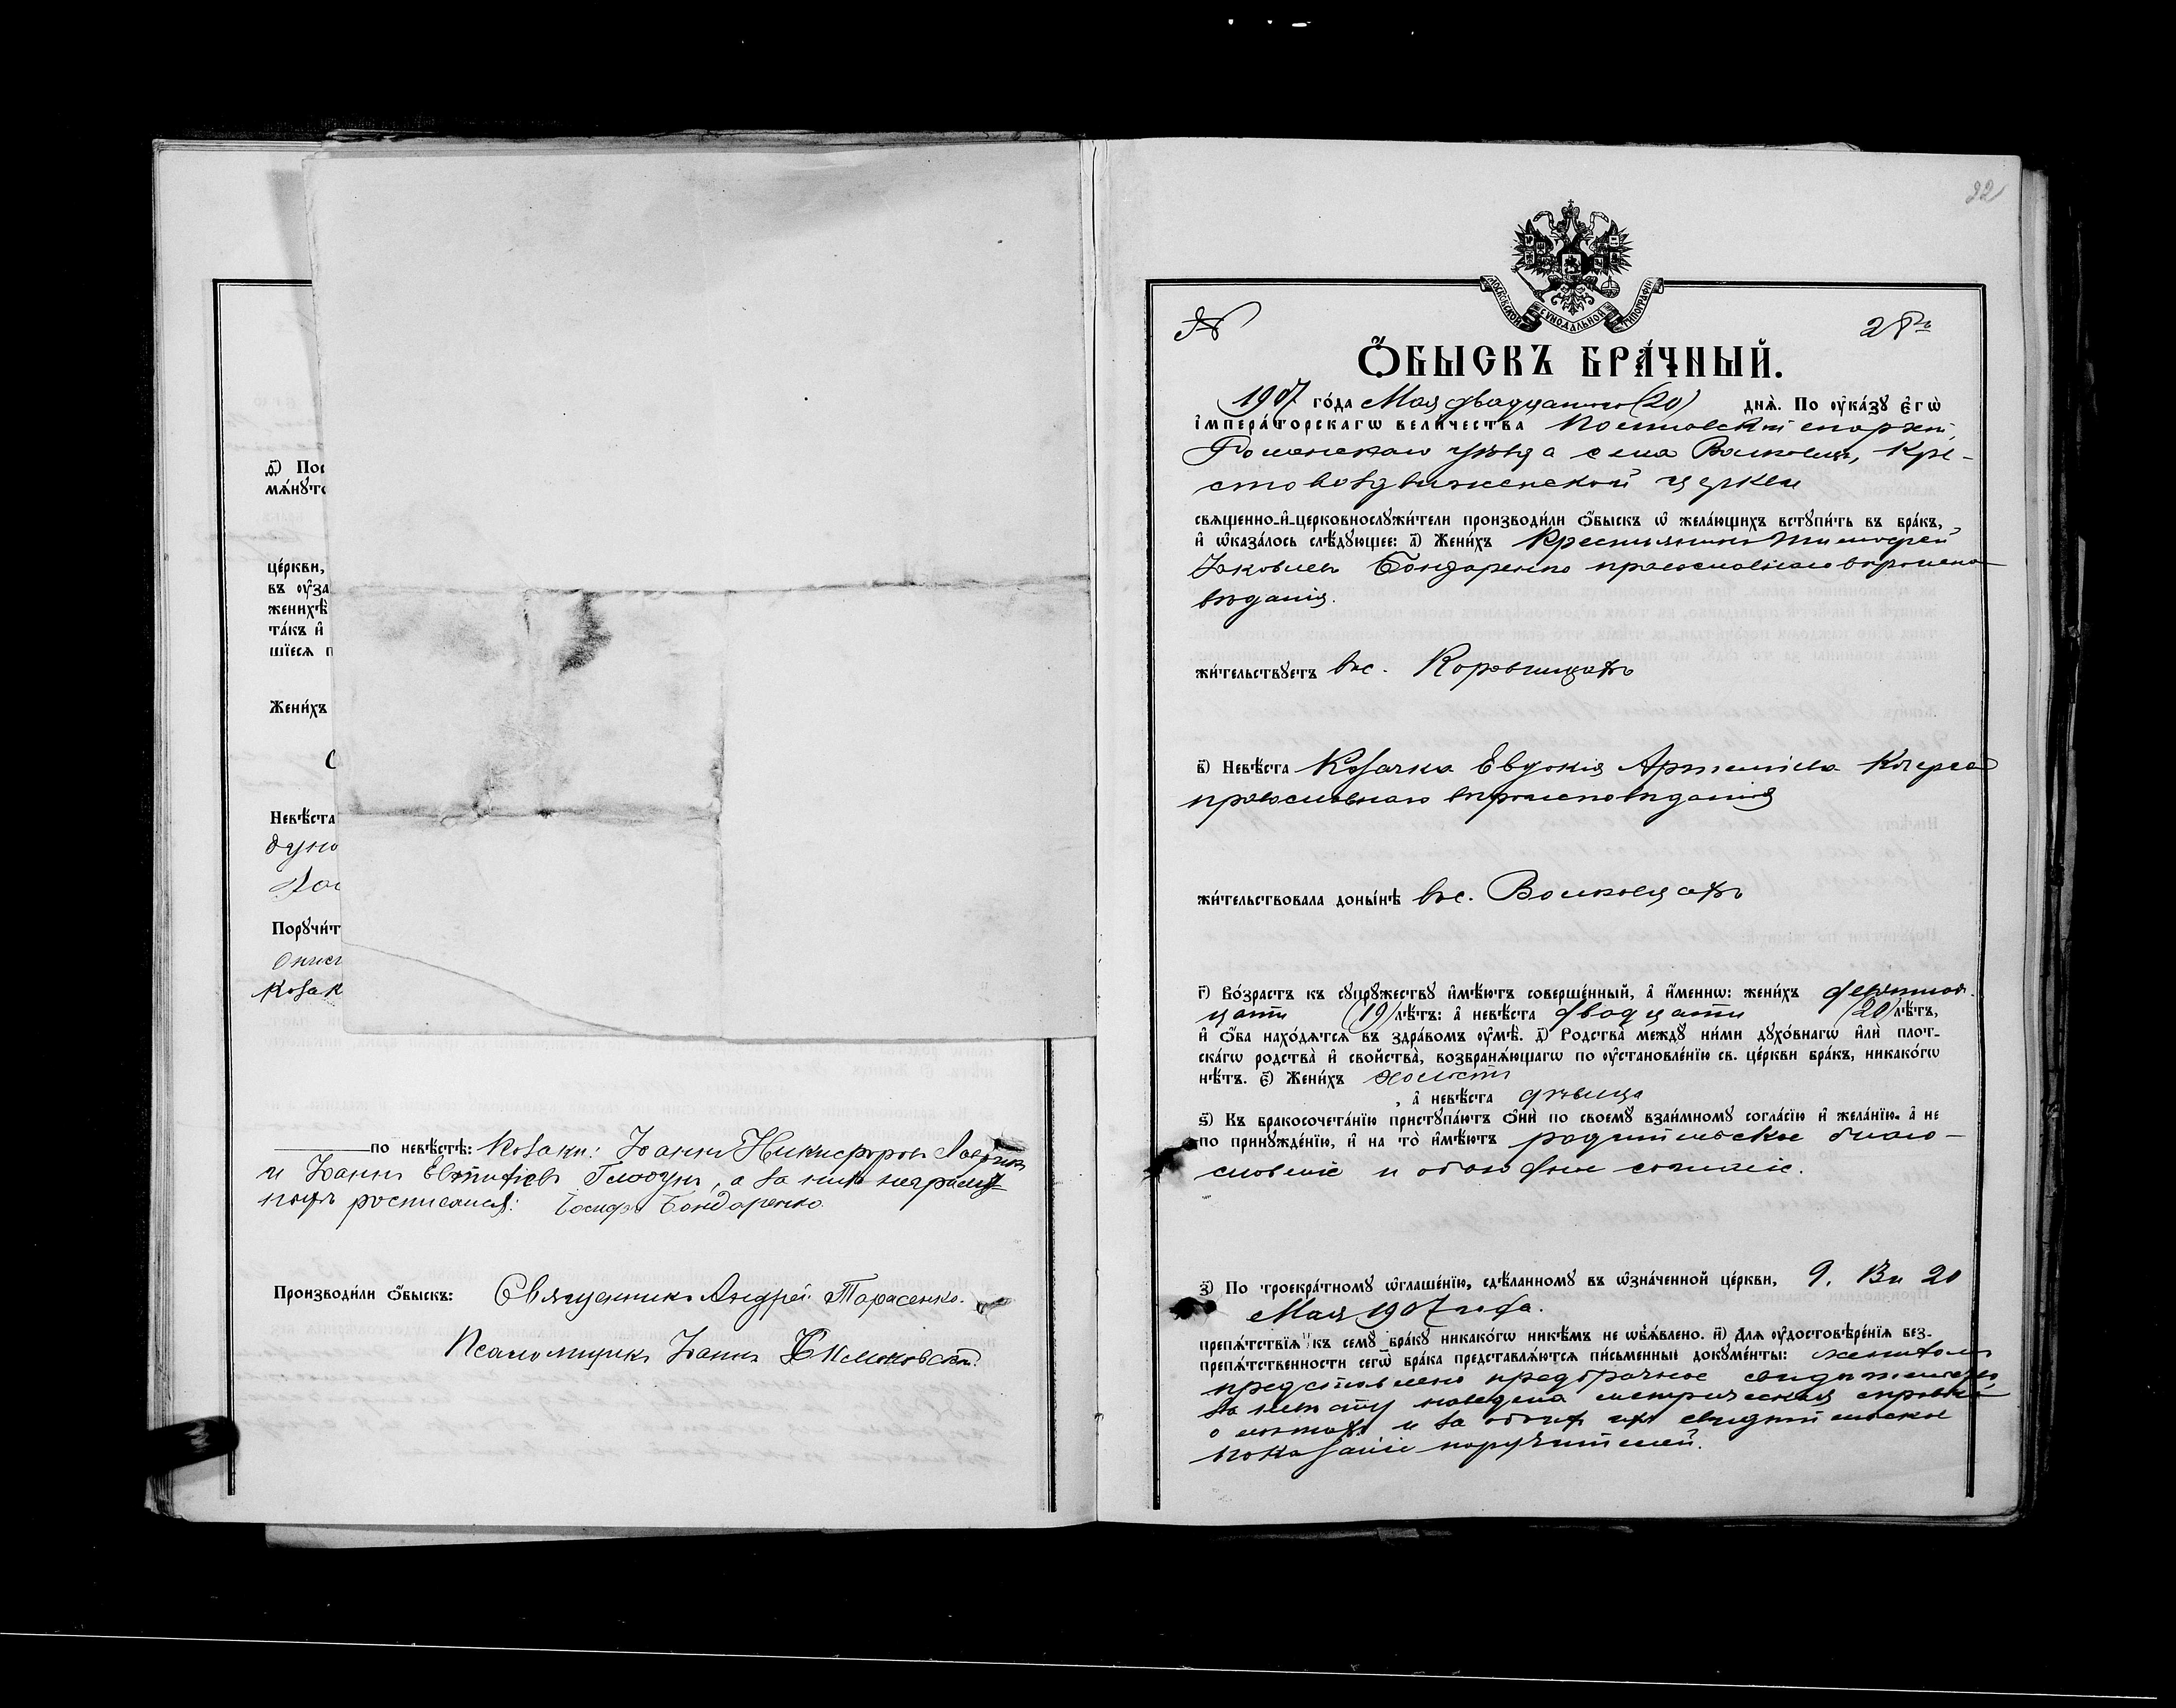 д҃) Пос
мѧнꙋто
це́ркви,
въ ᲂу҆за
женихѣ
та́къ и҆
шїесѧ п
Жени́хъ
Невѣ́ста
дуно
Порꙋчи́т
Козак
по невѣ́стѣ: Козаки: Іоаннъ Никифоровъ
и Іоаннъ Евтихіевъ Гловунъ, а за нихъ неграмот
ныхъ росписался: Іосифъ Бондаренко.
Производи́ли ѻ҆́быскъ: Священникъ Андрей Тарасенко.
Псаломщикъ Іоаннъ
22
МОСКОВСКОЙ СѴНОДАЛЬНОЙ ТИПОГРАФІИ
№
Ѻ҆́БЫСКЪ БРА́ЧНЫЙ.
1907 го́да Мая двадцатаго (20) днѧ̀. По ᲂу҆ка́зꙋ є҆гѡ̀
і҆мпера́торскагѡ вели́чества Полтавской епархіи,
Роменскаго уѣзда села Волковецъ, Кре-
стовоздвиженской церкви
свѧще́нно-и҆-церковнослꙋжи́тели производи́ли ѻ҆́быскъ ѡ҆ жела́ющихъ встꙋпи́ть въ бра́къ,
и҆ ѡ҆каза́лось слѣ́дꙋющее: а҃) Жени́хъ Крестьянинъ Тимофей
Іаковлевъ Бондаренко православнаго вѣроиспо
вѣданія.
жи́тельствꙋетъ въ с. Коровинцахъ
в҃) Невѣ́ста Козачка Евдокія Артеміева Кочерга
православнаго вѣроисповѣданія
жи́тельствовала доны́нѣ въ с. Волковцахъ
г҃) Во́зрастъ къ сꙋпрꙋ́жествꙋ и҆мѣ́ютъ соверше́нный, а҆ и҆́меннѡ: жени́хъ девятнад-
цати (19) лѣ́тъ: а҆ невѣ́ста двадцати (20) лѣ́тъ,
и҆ ѻ҆́ба нахо́дѧтсѧ въ здра́вомъ ᲂу҆мѣ̀. д҃) Родства̀ междꙋ̀ ни́ми дꙋхо́внагѡ и҆лѝ плот-
ска́гѡ родства̀ и҆ сво́йства̀, возбранѧ́ющагѡ по ᲂу҆становле́нїю св. це́ркви бра́къ, никако́гѡ
нѣ́тъ. є҃) Жени́хъ холостъ
, а҆ невѣ́ста дѣвица
ѕ҃) Къ бракосочета́нїю пристꙋпа́ютъ ѻ҆нѝ по своемꙋ̀ взаи́мномꙋ согла́сїю и҆ жела́нїю. а҆ не
по принꙋжде́нїю, и҆ на то̀ и҆мѣ́ютъ родительское благо-
словеніе и обоюдное согласіе.
з҃) По троекра́тномꙋ ѡ҆глаше́нїю, сдѣ́ланномꙋ въ ѡ҆зна́ченной це́ркви, 9. 13 и 20
Мая 1907 года.
препѧ́тствїѧ къ семꙋ̀ бра́кꙋ никако́гѡ никѣ́мъ не ѡ҆б̾ѧ́влено. и҃) Длѧ ᲂу҆достовѣре́нїѧ без-
препѧ́тственности сегѡ̀ бра́ка представлѧ́ютсѧ пи́сьменныѧ докꙋме́нты: женихомъ
представлено предбрачное свидѣтельство,
на невѣсту наведена метрическая справка
о лѣтахъ и на обоихъ ихъ свидѣтельское
показаніе поручителей.